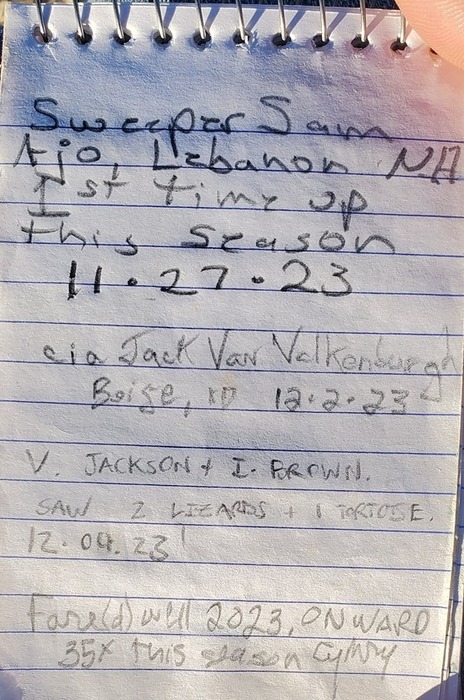 Sweeper Sam
Ajo, Lebanon NH
1st time up
this season
11.27.23
Jack Van Valkenburgh
Boise, ID 12.2.23
V. JACKSON + I. BROWN.
SAW 2 LIZARDS + 1 TORTOISE.
12.04.23
Fare(d) well 2023, ONWARD
35x this season